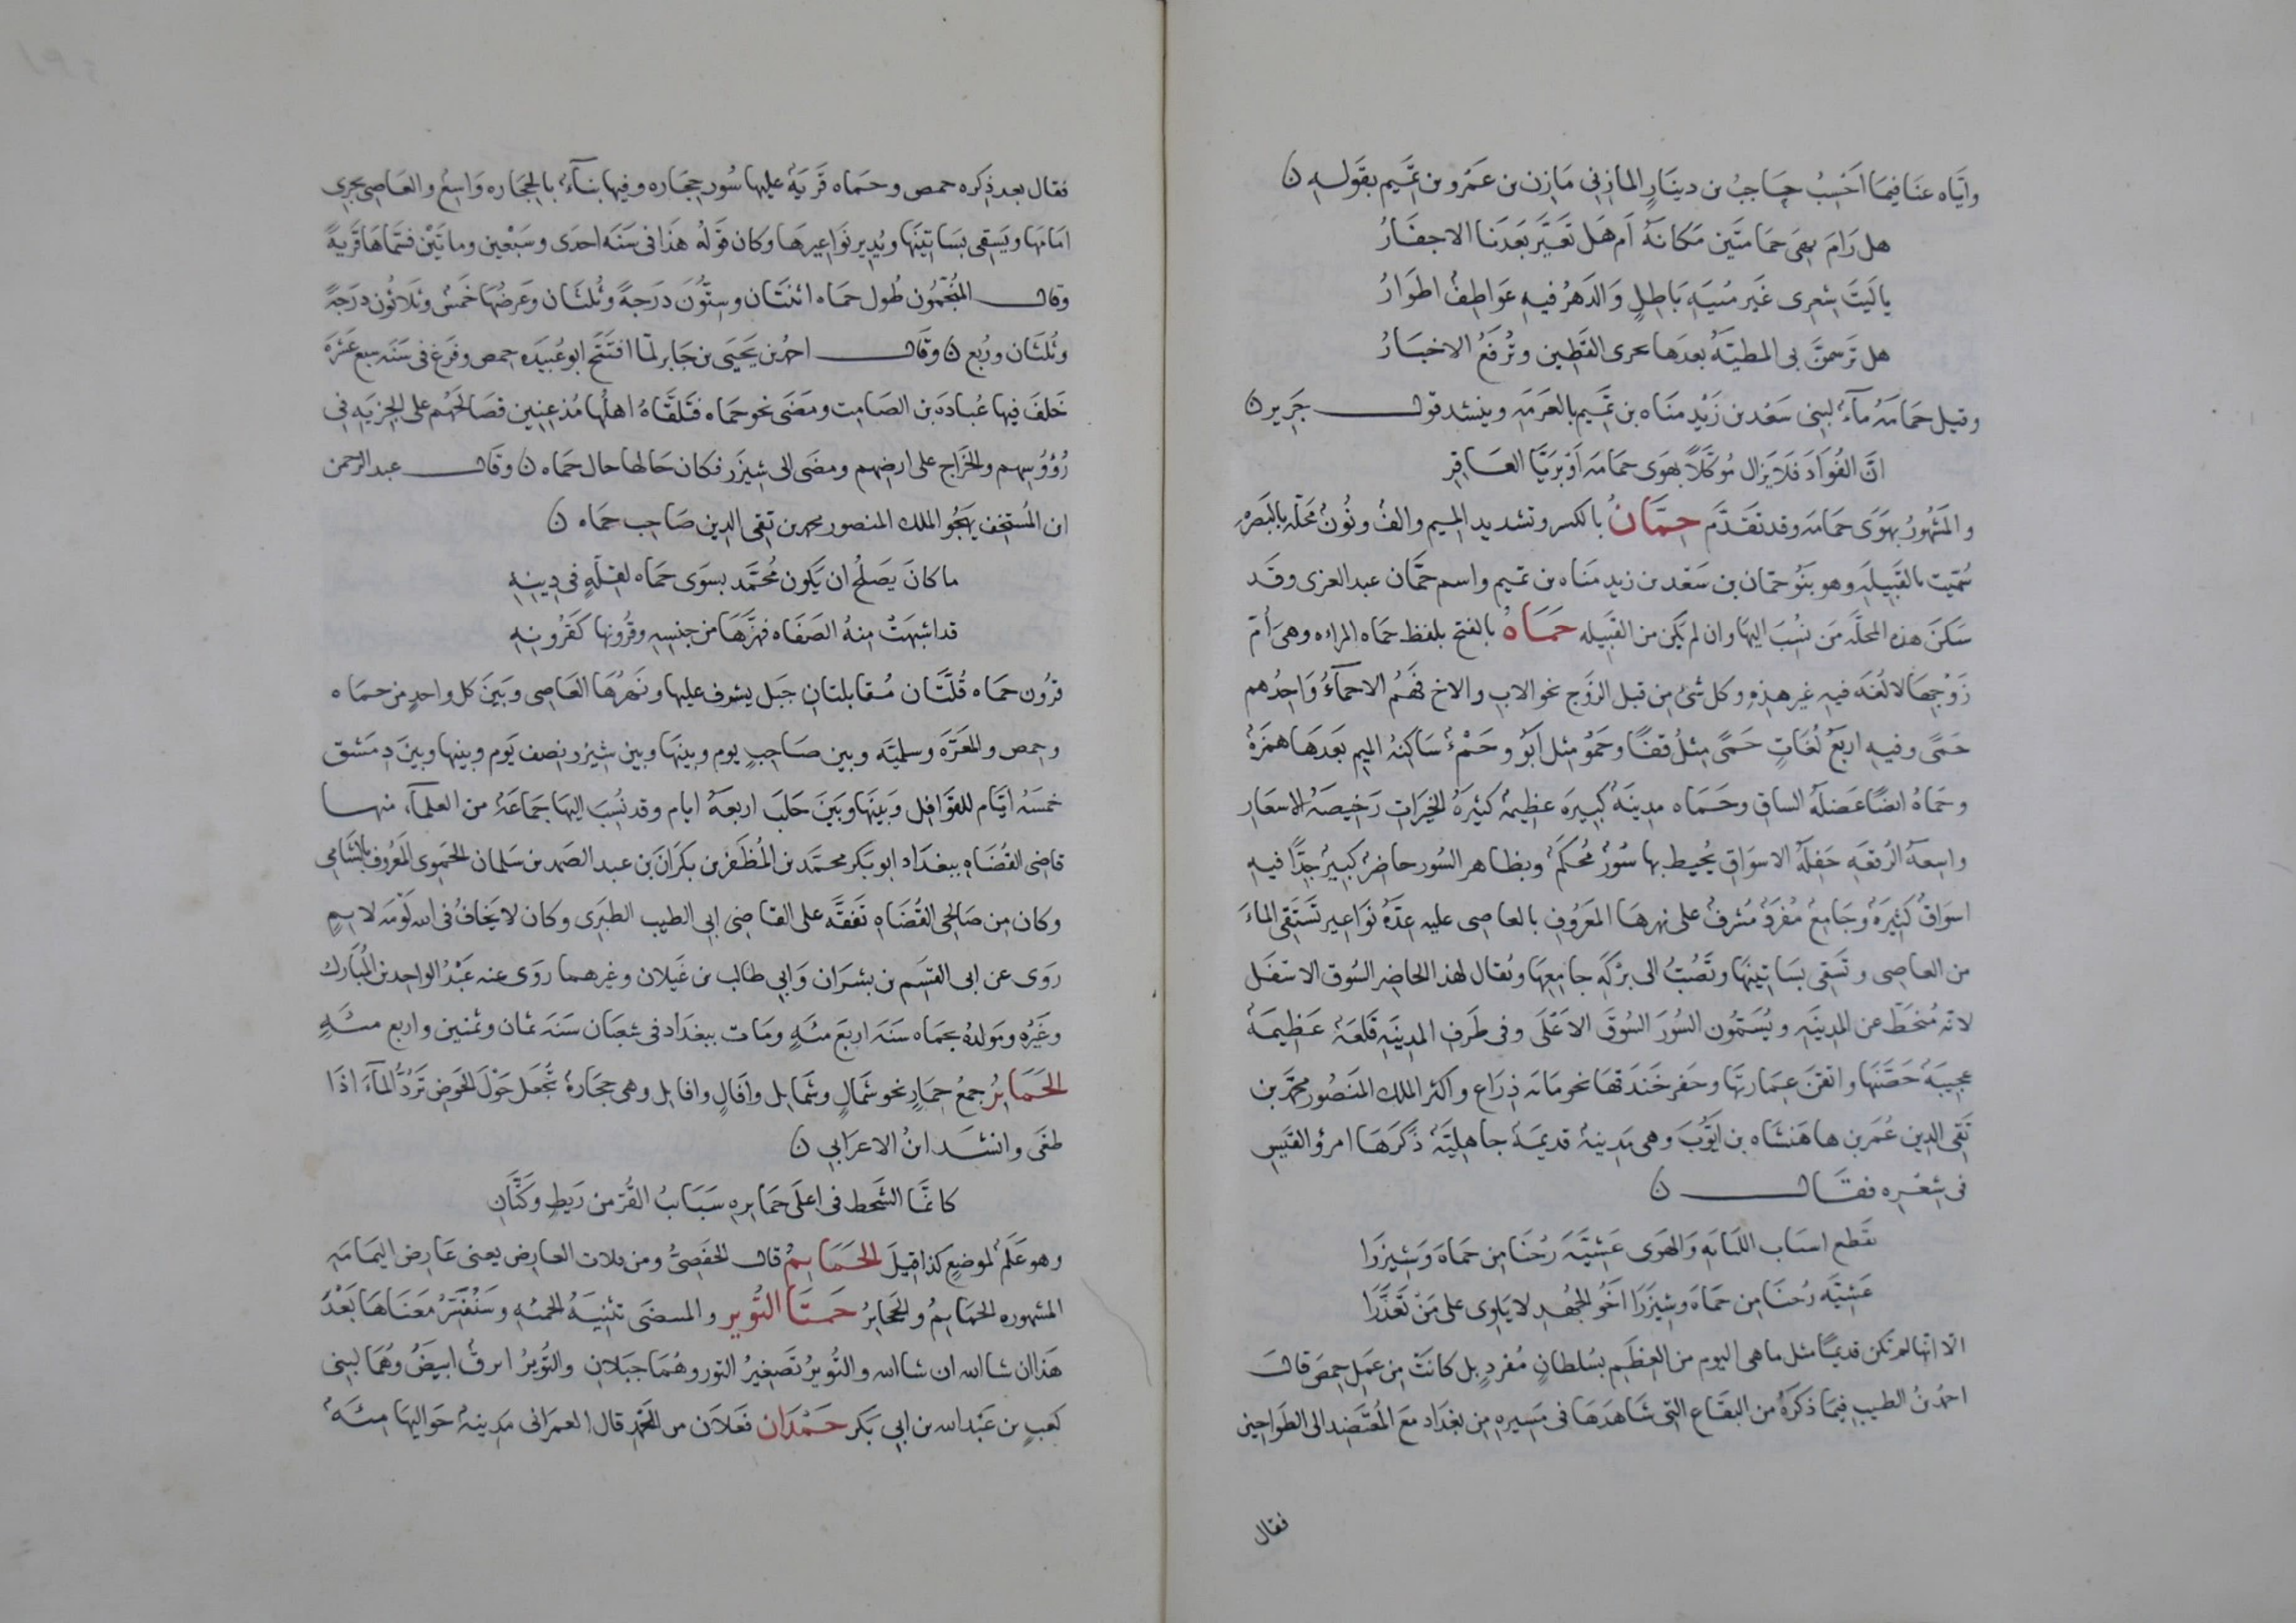 واياه عنا فيما احسب حاجب بن دينار المازني مازن بن عمرو بن تميم بقوله ن
هل رام نهى حمامتين مكانه ام هل تغير بعدنا الاحفار
يا ليت شعرى غير منية باطل والدهر فيه عواطف اطوار
هل ترسمن بى المطية بعدها يحدى القطين وترفع الاخبار
وقيل حمامه مآء لبنى سعد بن زيد مناه بن تميم بالعرمه وينشد قول جرير ن
ان الفواد فلا يزال موكلا بهوى حمامه او بريا العاقر
والمشهور بهوى حمامه وقد تقدم حمان بالكسر وتشديد الميم والف ونون محله بالبصره
سميت بالقبيله وهو بنو حمان بن سعد بن زيد مناه بن تميم واسم حمان عبد العزى وقد
سكن هذه المحله من نسب اليها وان لم يكن من القبيله حماه بالفتح بلفظ حماه المراه وهى ام
زوجها لا لغه فيه غير هذه وكل شئ من قبل الزوج نحو الاب والاخ فهم الاحمآء واحدهم
حمى وفيه اربع لغات حمى مثل قفا وحمو مثل ابو وحمء ساكنه الميم بعدها همزه
وحماه ايضا عضله الساق وحماه مدينه كبيره عظيمه كثيره الخيرات رخيصه الاسعار
واسعه الرقعه حفله الاسواق يحيط بها سور محكم وبظاهر السور حاضر كبير جدا فيه
اسواق كثيره وجامع مفرد مشرف على نهرها المعروف بالعاصى عليه عده نواعير تستقى الماء
من العاصى وتسقى بساتينها وتصب الى بركه جامعها ويقال لهذا الحاضر السوق الاسفل
لانه منحط عن المدينه ويسمون السور السوق الاعلى وفى طرف المدينه قلعه عظيمه
عجيبه حصنها واتقن عمارتها وحفر خندقها نحو مائه ذراع واكثر الملك المنصور محمد بن
تقى الدين عمر بن هاهنشاه بن ايوب وهى مدينه قديمه جاهليه ذكرها امرؤ القيس
فى شعره فقال ن
تقطع اسباب اللبانه والهوى عشيه رحنا من حماه وشيزرا
عشيه رحنا من حماه وشيزرا اخو الجهد لا ياوى على من تعذرا
الا انها لم تكن قديما مثل ما هى اليوم من العظم بسلطان مفرد بل كانت من عمل حمص قال
احمد بن الطيب فيما ذكره من البقاع التى شاهدها فى مسيره من بغداد مع المعتضد الى الطواحين
فقال
فقال بعد ذكره حمص وحماه قريه عليها سور حجاره وفيها بنآء بالحجاره واسع والعاصى يجرى
امامها ويسقى بساتينها ويدير نواعيرها وكان قوله هذا فى سنه احدى وسبعين ومايتين فسماها قرية
وقال المنجمون طول حماه اثنتان وستون درجة وثلثان وعرضها خمس وثلاثون درجة
وثلثان وربع ن وقال احمد بن يحيى بن جابر لما افتتح ابو عبيده حمص وفرغ فى سنه سبع عشره
خلف فيها عباده بن الصامت ومضى نحو حماه فتلقاه اهلها مذعنين فصالحهم على الجزيه فى
رؤوسهم والخراج على ارضهم ومضى الى شيزر فكان حالها حال حماه ن وقال عبد الرحمن
ابن المستخف يهجو الملك المنصور محمد بن تقى الدين صاحب حماه ن
ما كان يصلح ان يكون محمد بسوى حماه لقله فى دينه
قد اشبهت منه الصفاه فهزها من جنسه وقرونها كقرونه
قرون حماه قلتان متقابلتان جبل يشرف عليها ونهرها العاصى وبين كل واحد من حماه
وحمص والمعره وسلميه وبين صاحب يوم وبينها وبين شيزر نصف يوم وبينها وبين دمشق
خمسه ايام للقوافل وبينها وبين حلب اربعه ايام وقد نسب اليها جماعه من العلمآء منها
قاضى القضاه ببغداد ابو بكر محمد بن المظفر بن بكران بن عبد الصمد بن سلمان الحموى المعروف بالشامى
وكان من صالحى القضاه تفقه على القاضى ابى الطيب الطبرى وكان لا يخاف فى الله لومه لايم
روى عن ابى القسم بن بشران وابى طالب بن غيلان وغيرهما روى عنه عبد الواحد بن المبارك
وغيره ومولده بحماه سنه اربع مئه ومات ببغداد فى شعبان سنه ثمان وثمنين واربع مئه
الحماير جمع حمار نحو شمال وشمايل وافال وافايل وهى حجاره تجعل حول الحوض ترد المآء اذا
طغى وانشد ابن الاعرابى ن
كانما الشحط فى اعلى حمايره سبايب القز من ريط وكتان
وهو علم لموضع كذا قيل الحمايم قال الحفصى ومن قلات العارض يعنى عارض اليمامه
المشهوره الحمايم والحجاير حمتا الثوير والمسضى تثنيه الحمه وسنفسر معناها بعد
هذا ان شا الله ان شا الله والثوير تصغير الثور وهما جبلان والثوير ابرق ابيض وهما لبنى
كعب بن عبد الله بن ابى بكر حمدان فعلان من الحمد قال العمرانى مدينه حواليها مئه